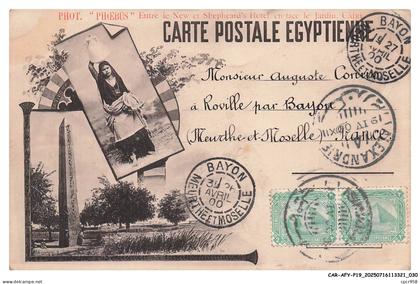 PHOT. "PHŒBUS" Entre le New et Shepheard's Hotel en face le Jardin, Caire
CARTE POSTALE EGYPTIENNE
BAYON
27
AVRIL
00
MEURTHE ET MOSELLE
Monsieur Auguste
à Roville par Bayon
(Meurthe-et-Moselle) France
ALEXANDRIE
19 IV 00
BAYON
AVRIL
00
MEURTHE ET MOSELLE
CAR-AFY-P19_20250716113321_030
cpc958